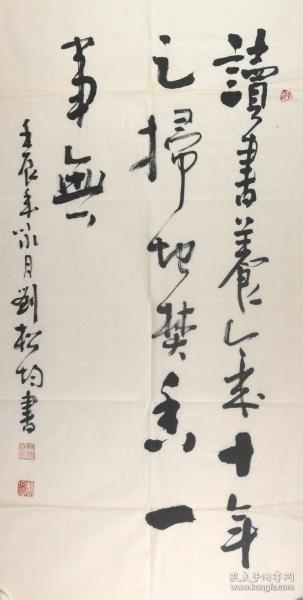 讀書養氣十年
足掃地焚香一
事無
壬辰年冰月劉松均書
孔夫子旧书网
www.kongfz.com